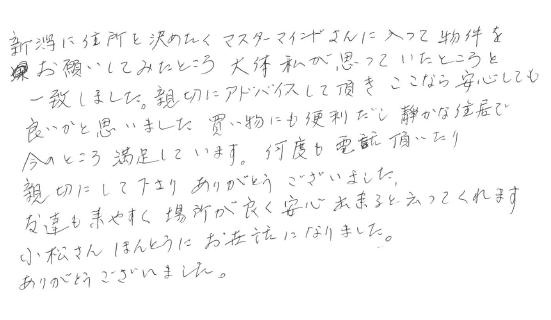 新潟に住所を決めたくマスターマインドさんに入って物件を
お願いしてみたところ大体私が思っていたところと
一致しました。親切にアドバイスして頂きここなら安心しても
良いかと思いました買い物にも便利だし静かな住居で
今のところ満足しています。何度も電話頂いたり
親切にして下さりありがとうございました。
友達も来やすく場所が良く安心出来ると云ってくれます
小松さんほんとうにお世話になりました。
ありがとうございました。